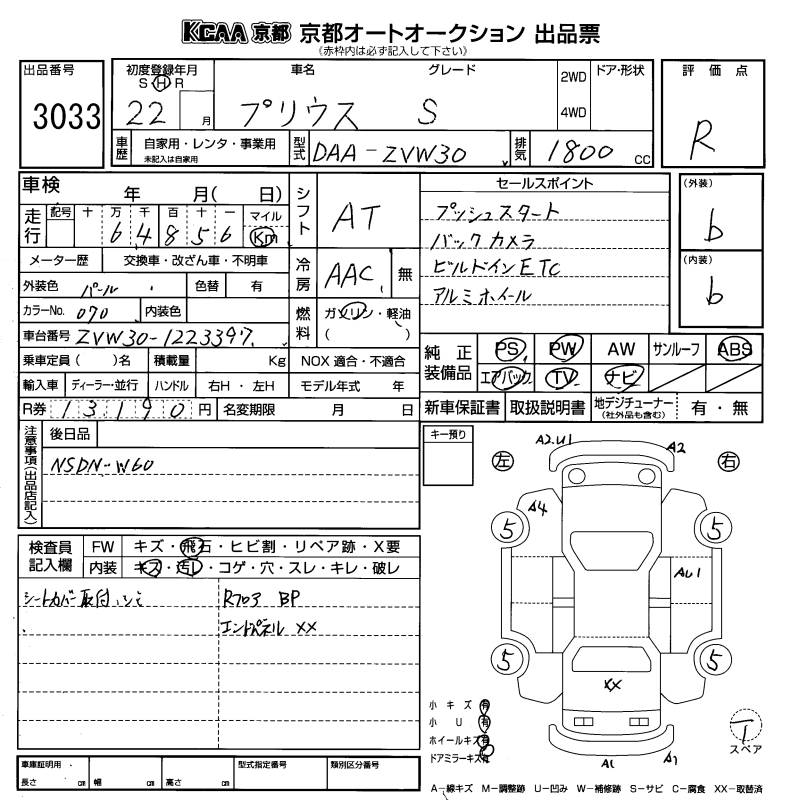 KCAA 京都 京都オートオークション 出品票
(赤枠内は必ず記入して下さい)
出品番号 3033
初度登録年月 S H R 22 月
車名 プリウス グレード S
2WD 4WD ドア・形状
評価点 R
車歴 自家用・レンタ・事業用 未記入は自家用
型式 DAA-ZVW30 排気 1800 CC
車検 年 月( 日)
走行 記号 十 万 千 百 十 一 マイル Km
6 4 8 5 6
メーター歴 交換車・改ざん車・不明車
外装色 パール 色替 有
カラーNo. 070 内装色
車台番号 ZVW30-1223397
乗車定員 ( )名 積載量 Kg
輸入車 ディーラー・並行 ハンドル 右H・左H
R券 13190円 名変期限 月 日
シフト AT
冷房 AAC 無
燃料 ガソリン・軽油 ( )
NOX 適合・不適合
モデル年式 年
セールスポイント
プッシュスタート
バックカメラ
ビルドインETC
アルミホイール
(外装) b
(内装) b
純正装備品 PS PW AW サンルーフ ABS
エアバック TV ナビ
新車保証書 取扱説明書 地デジチューナー (社外品も含む) 有・無
注意事項(出品店記入) 後日品
NSDN-W60
キー預り
検査員記入欄 FW キズ・飛石・ヒビ割・リペア跡・X要
内装 キズ・汚レ・コゲ・穴・スレ・キレ・破レ
シートカバー取付シミ
Rフロア BP
エンドパネル XX
左 右
A2.U1 A2
A4
5 5
AU1
5 5
XX
A1 A1
小キズ 有
小U 有
ホイールキズ 有
ドアミラーキズ 有
T スペア
車庫証明用 長さ cm 幅 cm 高さ cm 型式指定番号 類別区分番号
A-線キズ M-調整跡 U-凹み W-補修跡 S-サビ C-腐食 XX-取替済